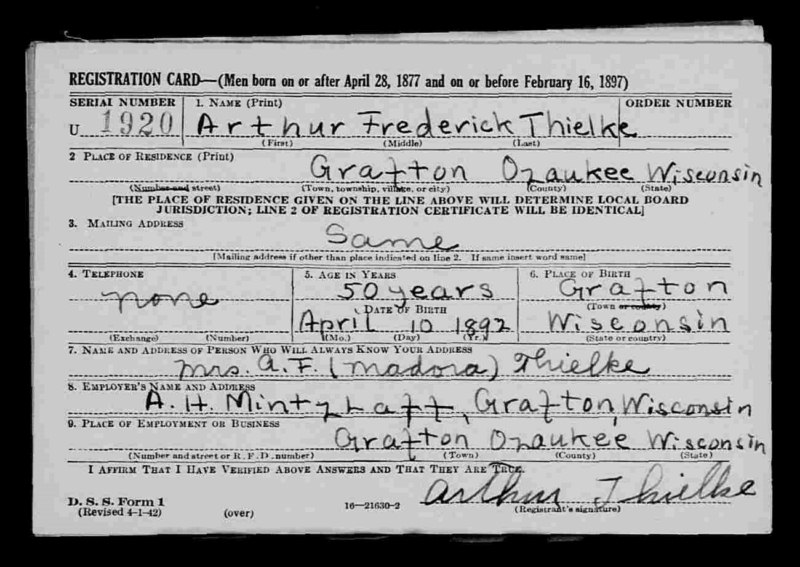 REGISTRATION CARD—(Men born on or after April 28, 1877 and on or before February 16, 1897)
SERIAL NUMBER 1. NAME (Print) ORDER NUMBER
U 1920 Arthur Frederick Thielke
(First) (Middle) (Last)
2 PLACE OF RESIDENCE (Print)
Grafton Ozaukee Wisconsin
(Number and street) (Town, township, village, or city) (County) (State)
[THE PLACE OF RESIDENCE GIVEN ON THE LINE ABOVE WILL DETERMINE LOCAL BOARD
JURISDICTION; LINE 2 OF REGISTRATION CERTIFICATE WILL BE IDENTICAL]
3. MAILING ADDRESS
Same
[Mailing address if other than place indicated on line 2. If same insert word same]
4. TELEPHONE 5. AGE IN YEARS 6. PLACE OF BIRTH
none 50 years Grafton
DATE OF BIRTH (Town or county)
April 10 1892 Wisconsin
(Exchange) (Number) (Mo.) (Day) (Yr.) (State or country)
7. NAME AND ADDRESS OF PERSON WHO WILL ALWAYS KNOW YOUR ADDRESS
Mrs. A. F. (Madora) Thielke
8. EMPLOYER'S NAME AND ADDRESS
A. H. Grafton, Wisconsin
9. PLACE OF EMPLOYMENT OR BUSINESS
Grafton Ozaukee Wisconsin
(Number and street or R. F. D. number) (Town) (County) (State)
I AFFIRM THAT I HAVE VERIFIED ABOVE ANSWERS AND THAT THEY ARE TRUE.
Arthur Thielke
D. S. S. Form 1
(Revised 4-1-42) (over) 16—21630-2 (Registrant's signature)